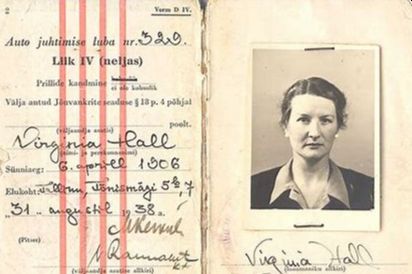 Vorm D IV.
Auto juhtimise luba nr. 329.
Liik IV (neljas)
Prillide kandmine kohuslik
ei ole kohuslik
Välja antud Jõuvankrite seaduse § 18 p. 4 põhjal
poolt.
(väljaandja asutis)
Virginia Hall
(nimi- ja perekonnanimi)
Sünniaeg: 6. aprill 1906
Elukoht: Tallinn, Tõnismägi 5a, 7
"31" augustil 1938 a.
(Pitser)
(väljaandja asutise allkiri)
Virginia Hall
(omaniku allkiri)